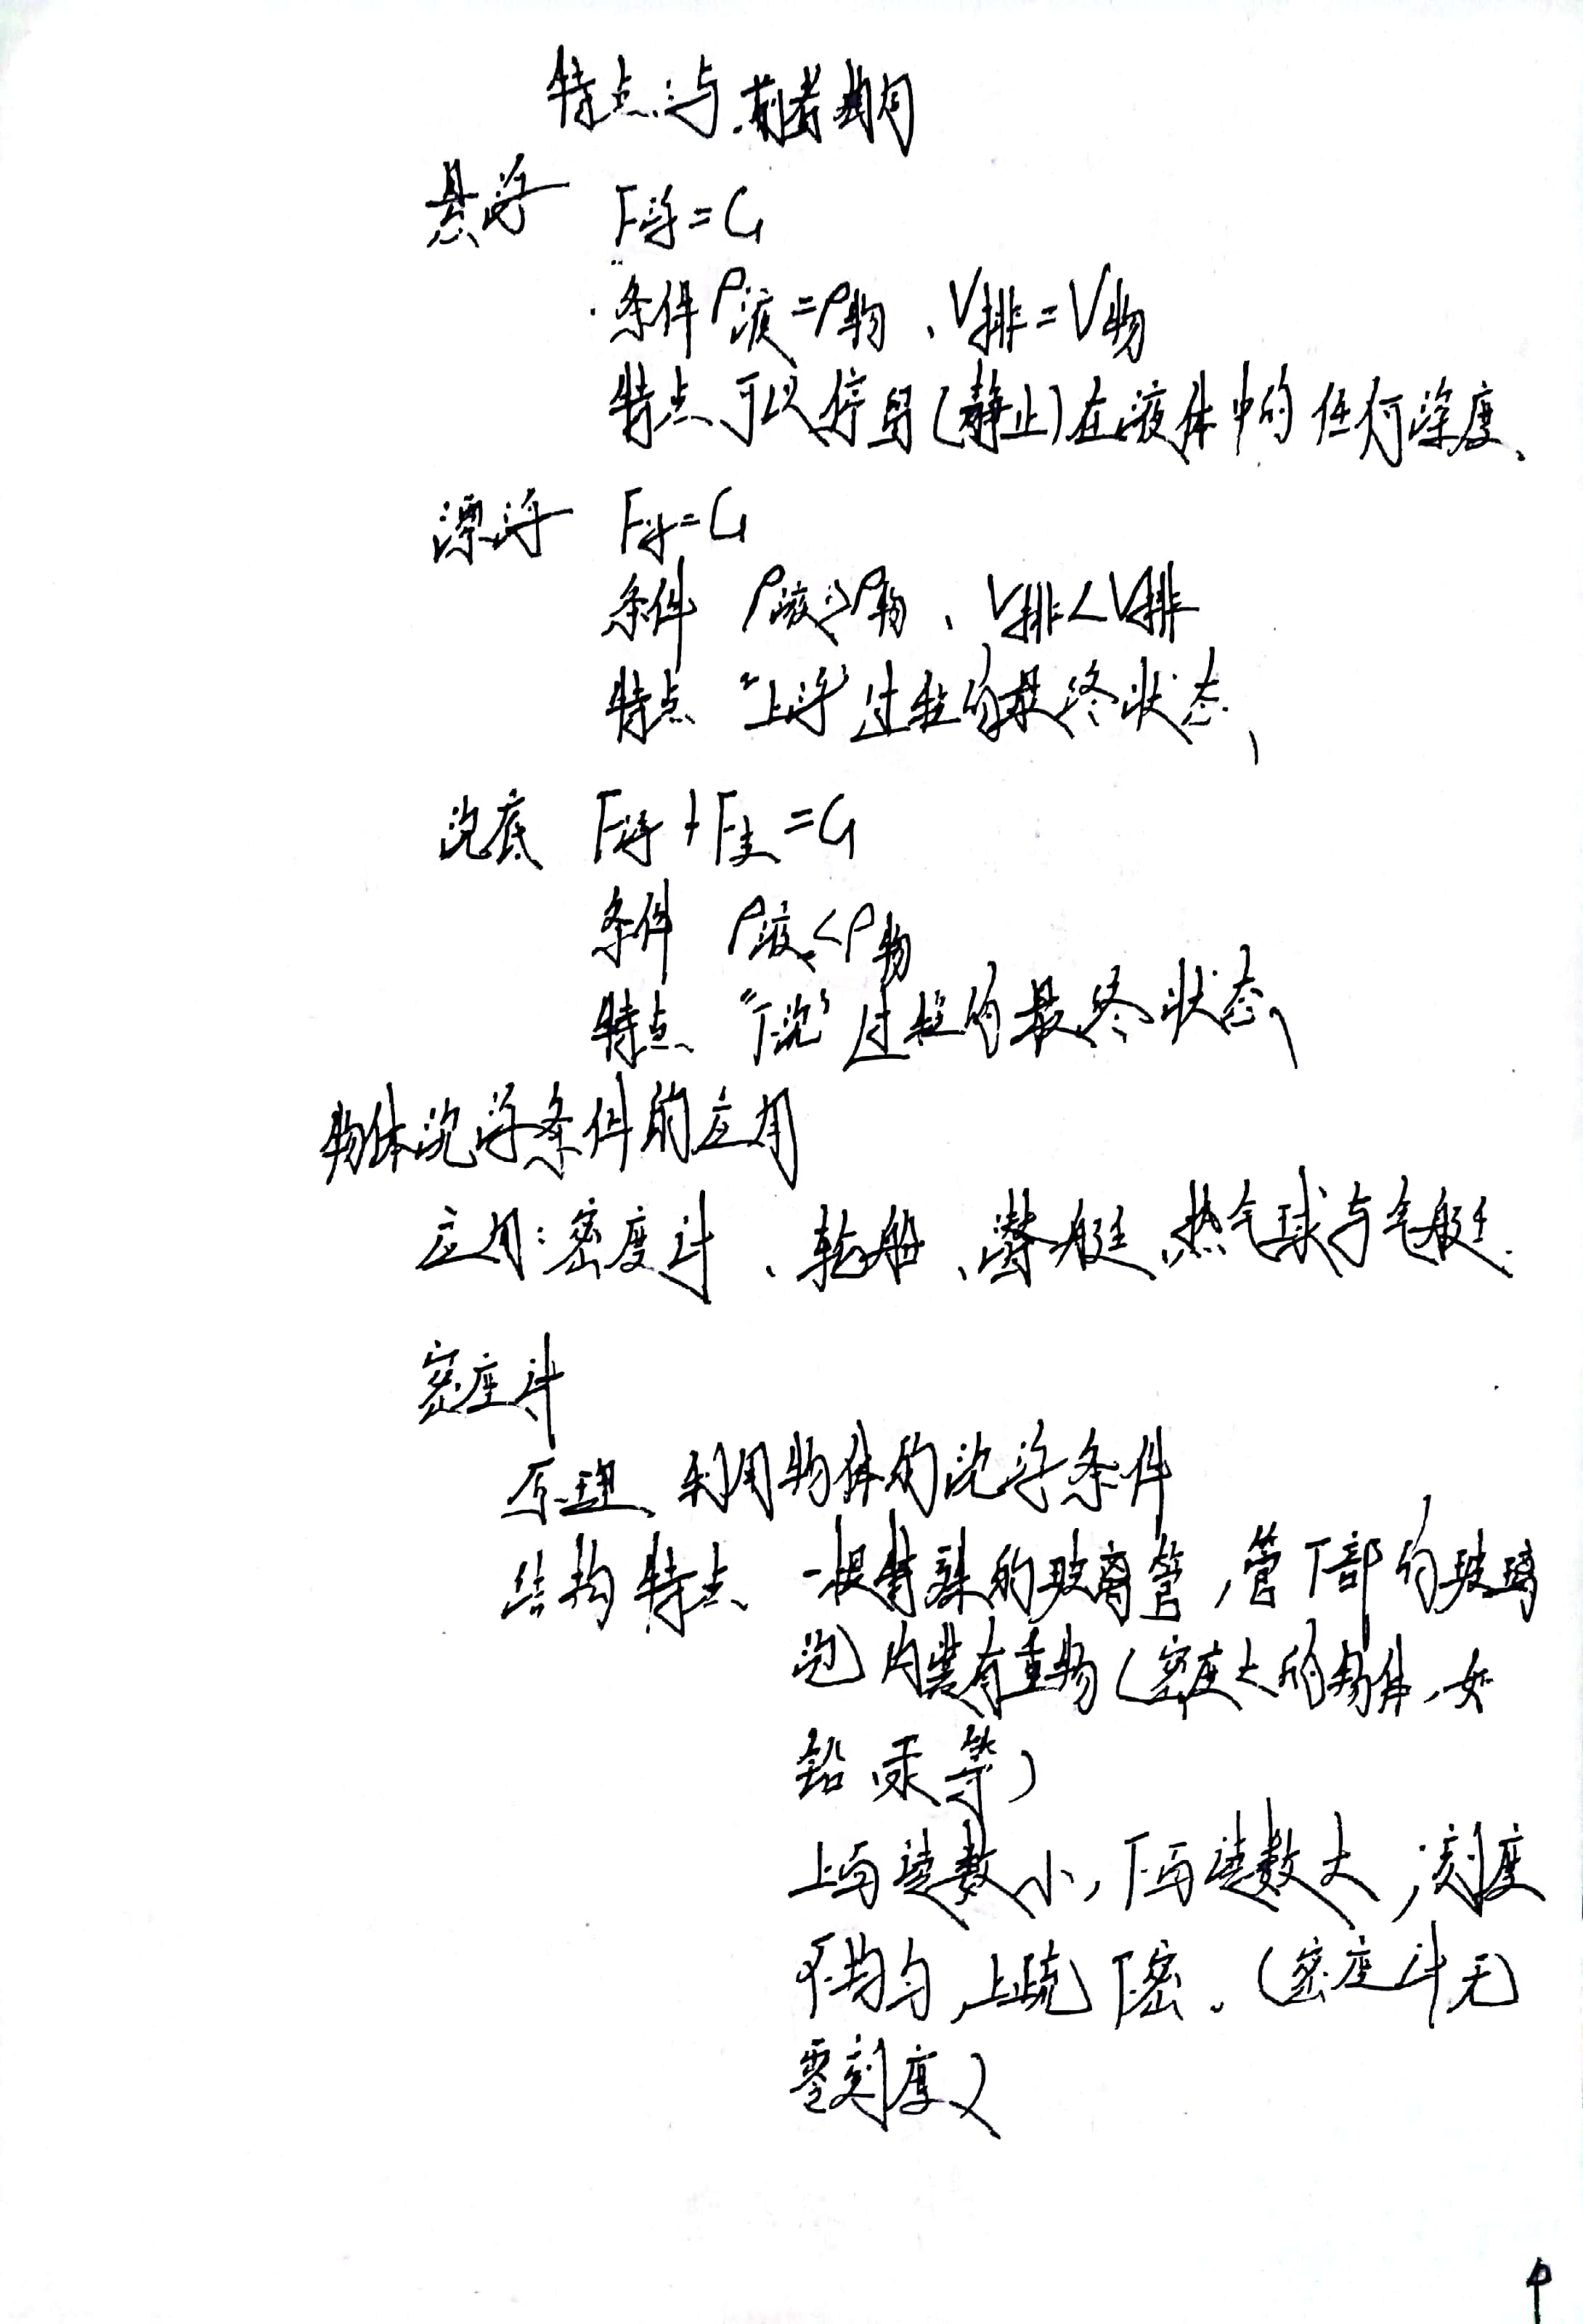 特点:与前者相同
悬浮 F浮=G
条件 ρ液=ρ物、V排=V物
特点 可以停留(静止)在液体中的任何深度、
漂浮 F浮=G
条件 ρ液>ρ物、V排<V排
特点 “上浮”过程的最终状态、
沉底 F浮+F支=G
条件 ρ液<ρ物
特点 “下沉”过程的最终状态、
物体沉浮条件的应用
应用:密度计、轮船、潜艇、热气球与气艇.
密度计
原理、利用物体的沉浮条件
结构特点 一根特殊的玻璃管,管下部的玻璃
泡内装有重物(密度大的物体,如
铅、汞等)
上面读数小,下面读数大,刻度
不均匀,上疏下密。(密度计无
零刻度)